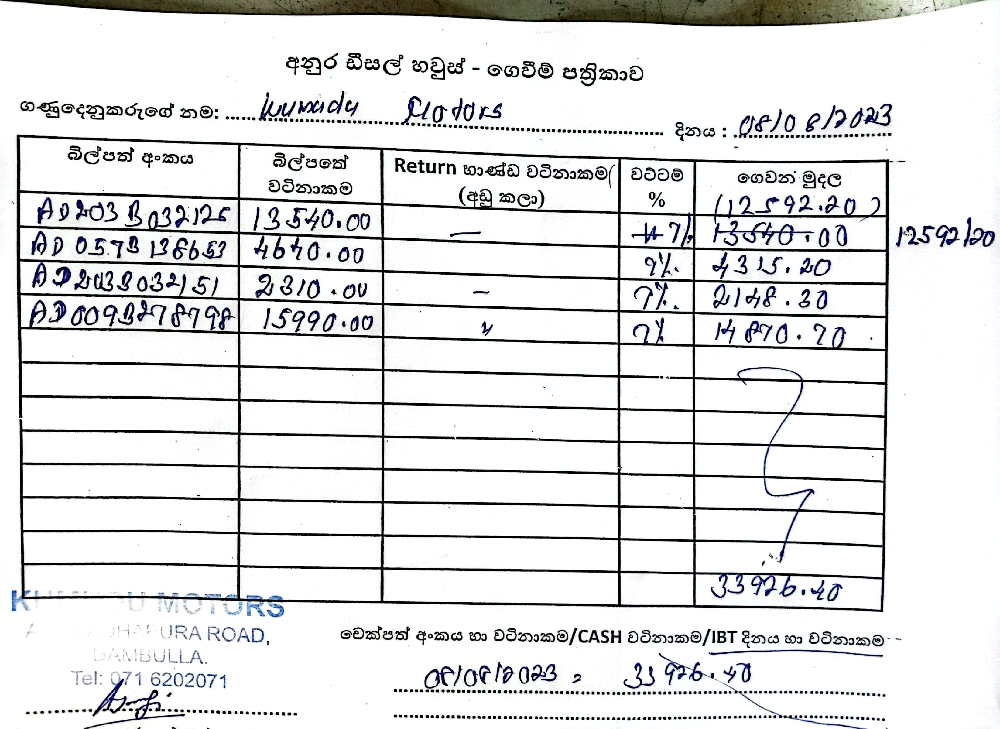 අනුර ඩීසල් හවුස් - ගෙවීම් පත්‍රිකාව
ගණුදෙනුකරුගේ නම: Kumudu Motors දිනය : 08/08/2023
බිල්පත් අංකය බිල්පතේ වටිනාකම Return භාණ්ඩ වටිනාකම (අඩු කලා) වට්ටම් % ගෙවන මුදල
(12592.20)
AD203B032126 13540.00 — 7% 13540.00 12592/20
AD057B136653 4640.00 7%. 4315.20
AD203B032151 2310.00 – 7%. 2148.30
AD009B278798 15990.00 " 7% 14870.70
33926.40
KUMUDU MOTORS
ANURADHAPURA ROAD,
DAMBULLA.
Tel: 071 6202071
චෙක්පත් අංකය හා වටිනාකම/CASH වටිනාකම/IBT දිනය හා වටිනාකම
08/08/2023 = 33926.40